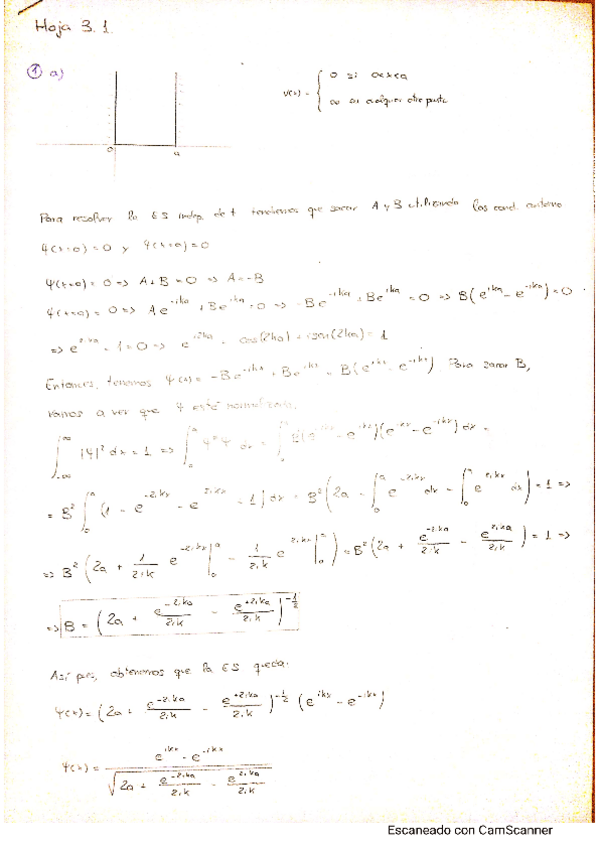 Hoja 3.1.
① a)
V(x) = { 0 si 0<x<a
∞ en cualquier otra parte
0 a
Para resolver la ES indep. de t tendremos que sacar A y B utilizando las cond. contorno
Ψ(x=0) = 0 y Ψ(x=a) = 0
Ψ(x=0) = 0 => A+B = 0 => A = -B
Ψ(x=a) = 0 => A e^{-ika} + B e^{ika} = 0 => -B e^{-ika} + B e^{ika} = 0 => B(e^{ika} - e^{-ika}) = 0
=> e^{2ika} - 1 = 0 => e^{i2ka} = cos(2ka) + isen(2ka) = 1
Entonces, tenemos Ψ(x) = -B e^{-ikx} + B e^{ikx} = B(e^{ikx} - e^{-ikx}). Para sacar B,
vamos a ver que Ψ está normalizada.
∫_{-∞}^{∞} |Ψ|² dx = 1 => ∫_0^a Ψ*Ψ dx = ∫ (e^{-ikx} - e^{ikx})(e^{ikx} - e^{-ikx}) dx =
= B² ∫_0^a (1 - e^{-2ikx} - e^{2ikx} + 1) dx = B² (2a - ∫_0^a e^{-2ikx} dx - ∫_0^a e^{2ikx} dx) = 1 =>
=> B² (2a + 1/2ik e^{-2ikx} |_0^a - 1/2ik e^{2ikx} |_0^a) = B² (2a + e^{-2ika}/2ik - e^{2ika}/2ik) = 1 =>
=> B = (2a + e^{-2ika}/2ik - e^{+2ika}/2ik)^{-1/2}
Así pues, obtenemos que la ES queda:
Ψ(x) = (2a + e^{-2ika}/2ik - e^{+2ika}/2ik)^{-1/2} (e^{ikx} - e^{-ikx})
Ψ(x) = (e^{ikx} - e^{-ikx}) / √(2a + e^{-2ika}/2ik - e^{2ika}/2ik)
Escaneado con CamScanner